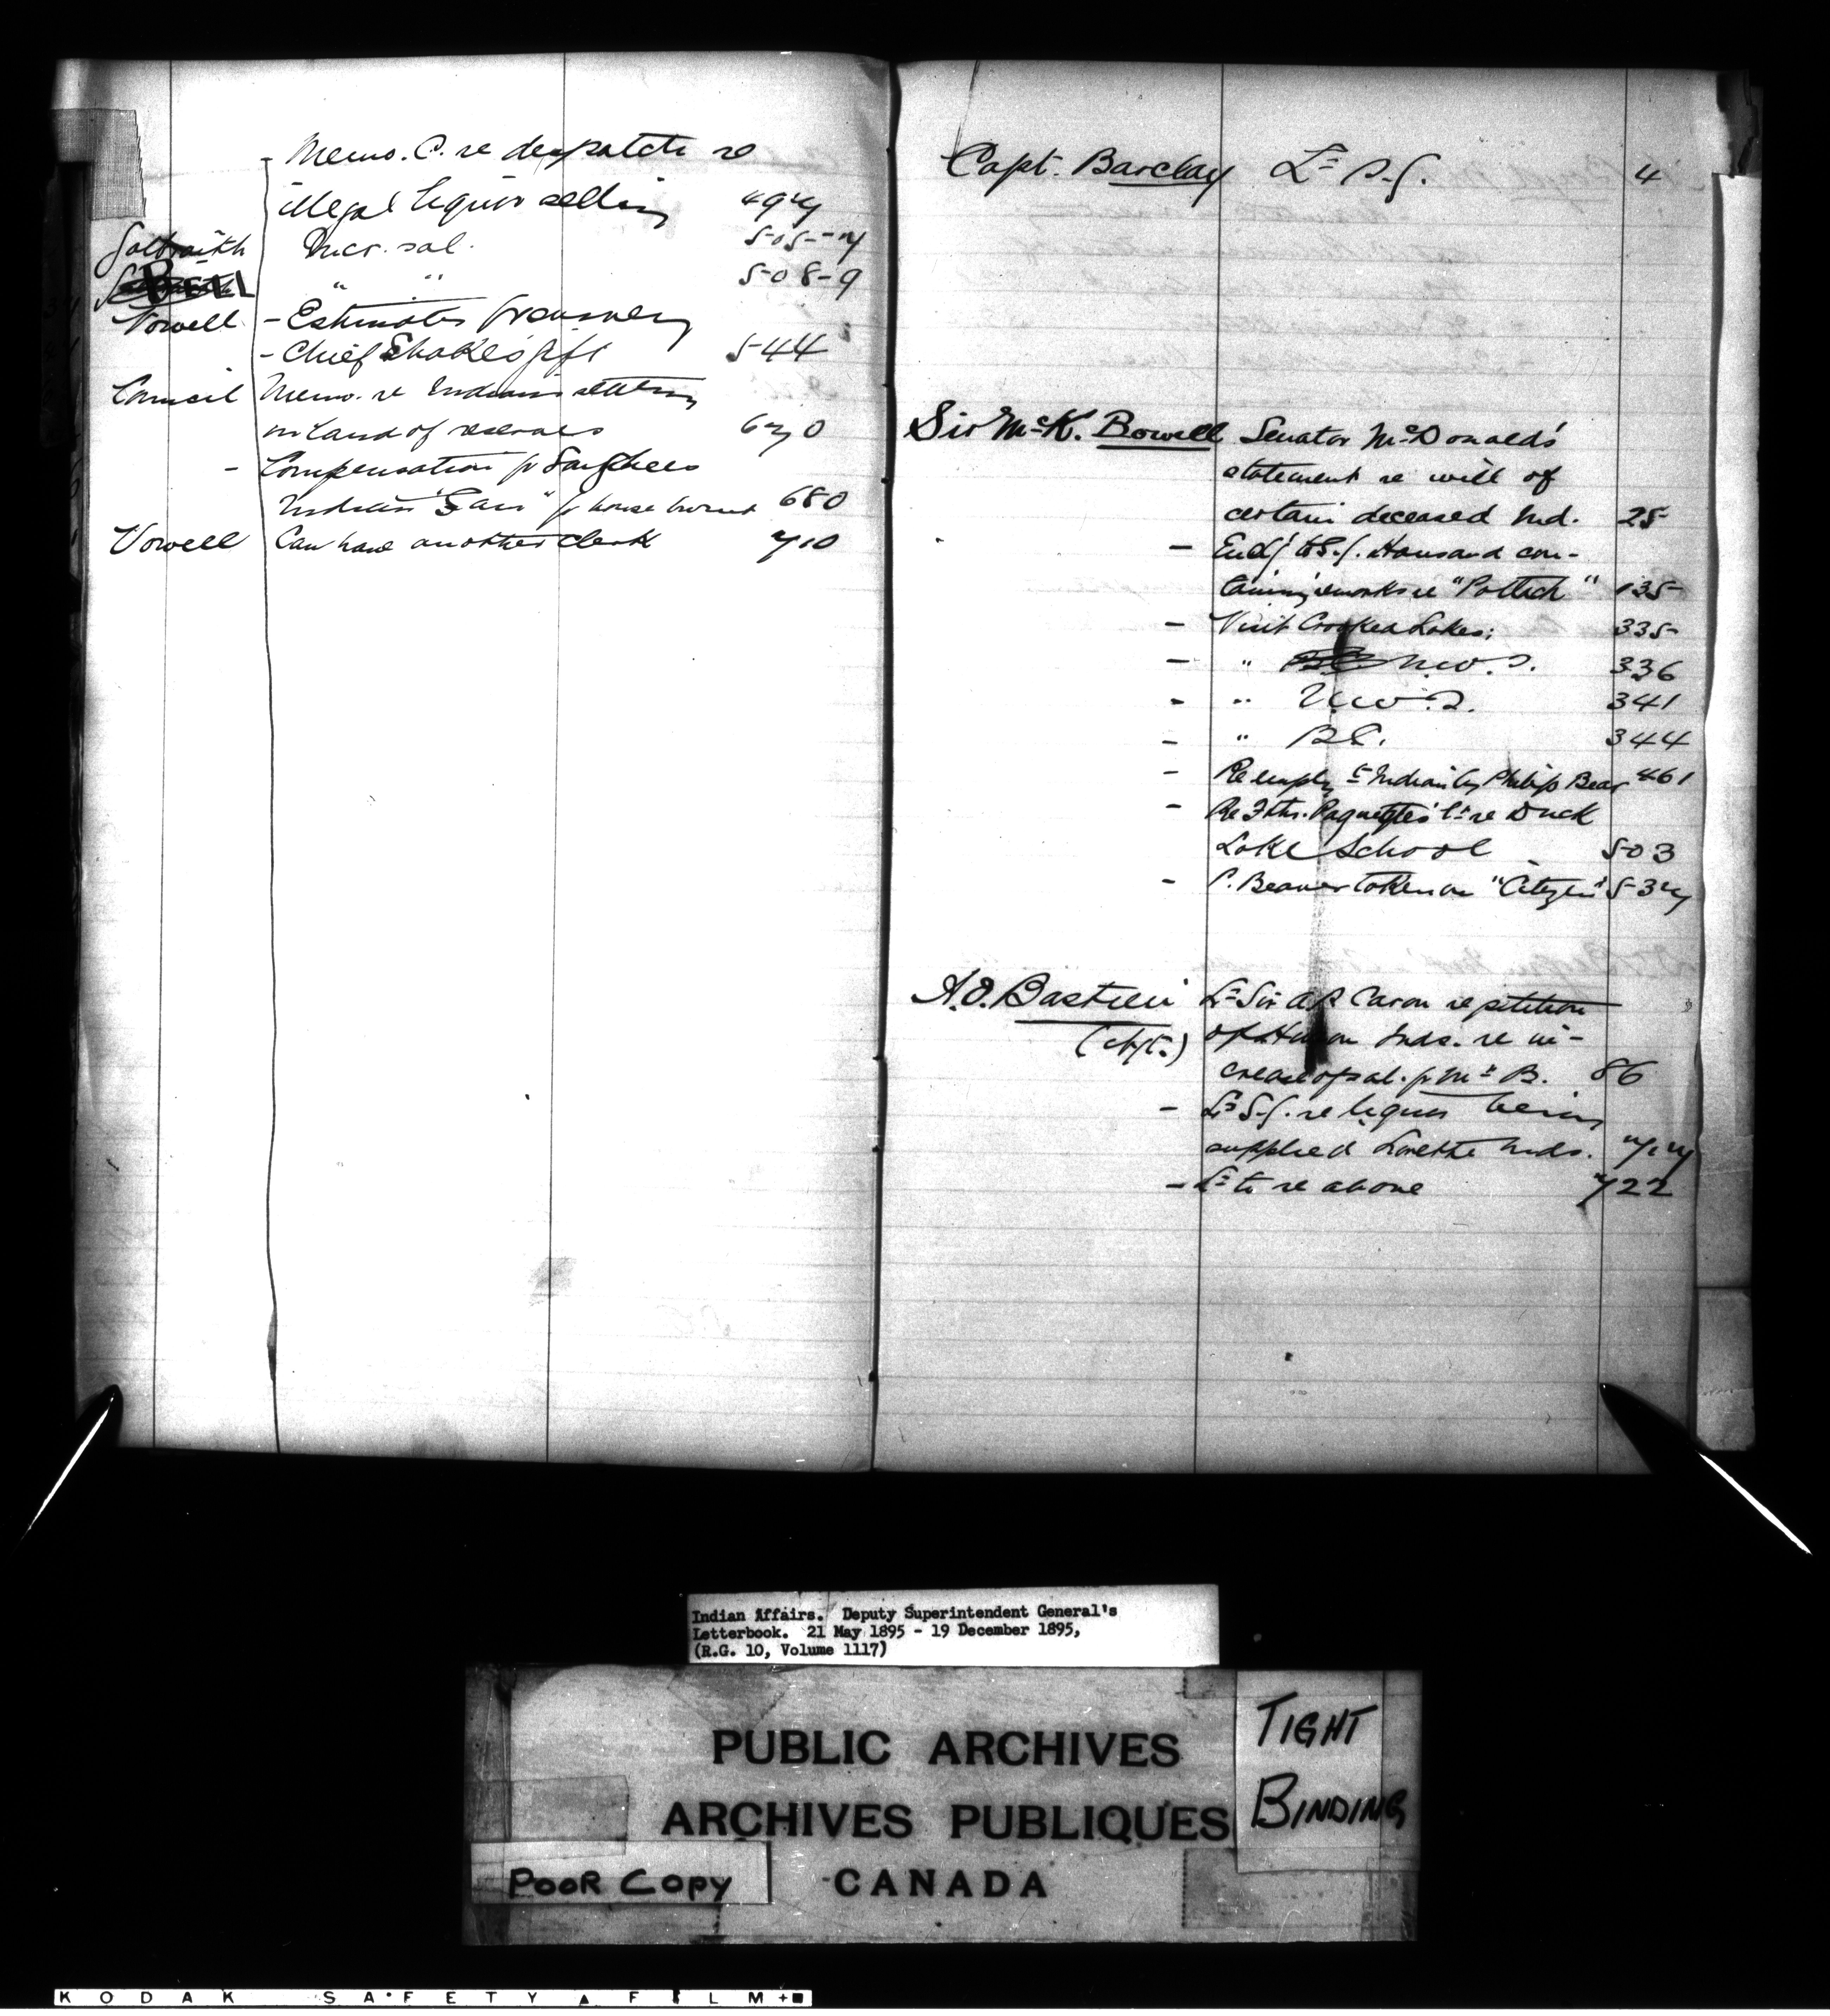 - Memo. C. re despatch re
illegal liquor selling 497
Galbraith Incr. sal. 505-7
BELL " " 508-9
Vowell - Estimates
- Chief Shake's gift 544
Council Memo. re Indians settling
on land of reserves 670
- Compensation for
Indian "Sam" for house burnt 680
Vowell Can have another clerk 710
Capt. Barclay Lr S.G. 4
Sir McK. Bowell Senator McDonald's
statement re will of
certain deceased Ind. 25
- Encl'g to S.G. Hansard con-
taining remarks re "Potlach" 135
- Visit Crooked Lakes; 335
- " N.W.T. 336
- " N.W.T. 341
- " B.C. 344
- Re empl. Indian by Philip Bear 461
- Re Fthr. Paquette's Lr re Duck
Lake School 503
- P. Beaver taken on "Citizen" 537
A.O. Bastien Lr Sir A.P. Caron re petition
(Agt.) of Huron Inds. re in-
crease of sal. for Mr B. 86
- Lr S.G. re liquor being
supplied Lorette Inds. 717
- Lr to re above 722
Indian Affairs. Deputy Superintendent General's
Letterbook. 21 May 1895 - 19 December 1895,
(R.G. 10, Volume 1117)
PUBLIC ARCHIVES
ARCHIVES PUBLIQUES
CANADA
TIGHT
BINDING
POOR COPY
KODAK SAFETY FILM